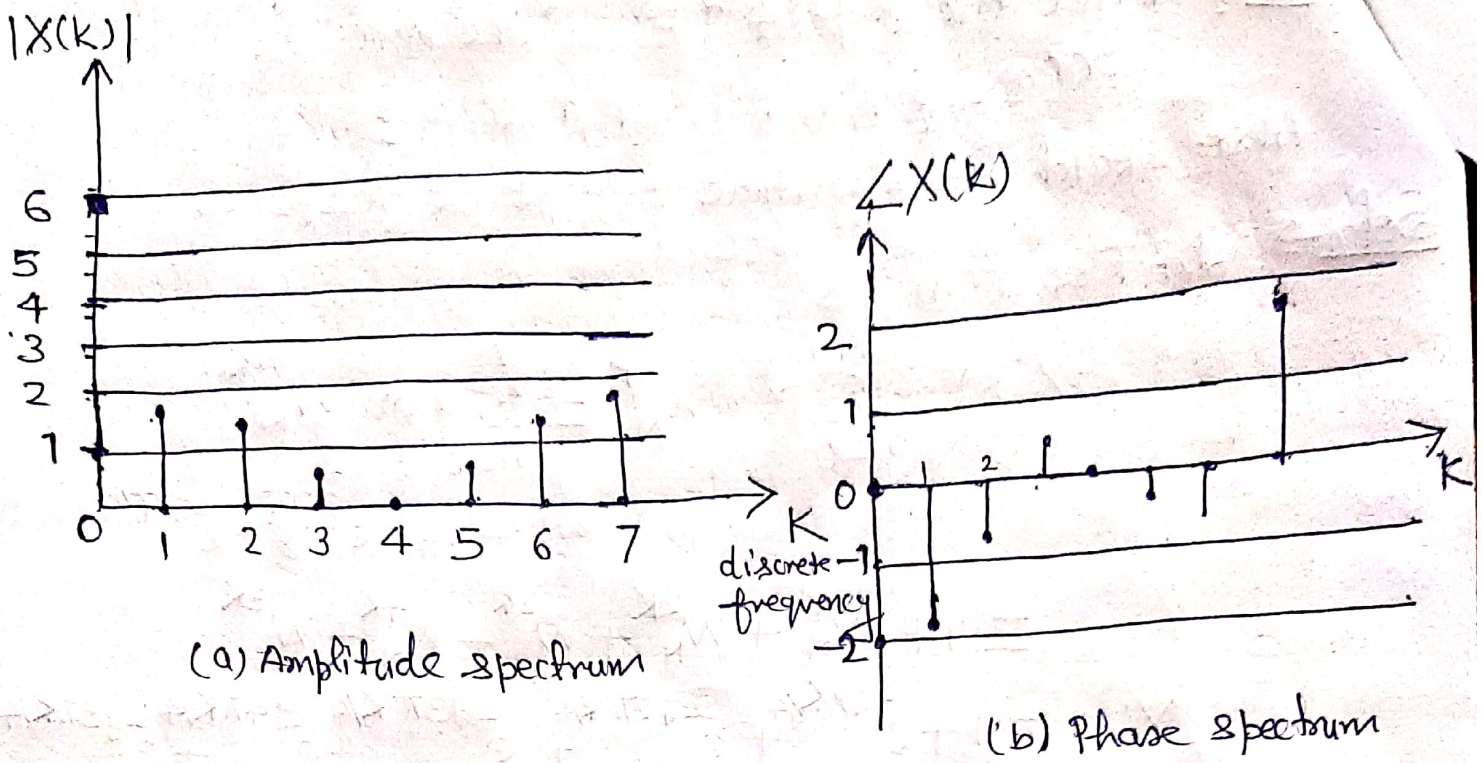 |X(k)|
6
5
4
3
2
1
0 1 2 3 4 5 6 7
K
discrete
frequency
(a) Amplitude spectrum
∠X(k)
2
1
0
-1
-2
1 2
K
(b) Phase spectrum